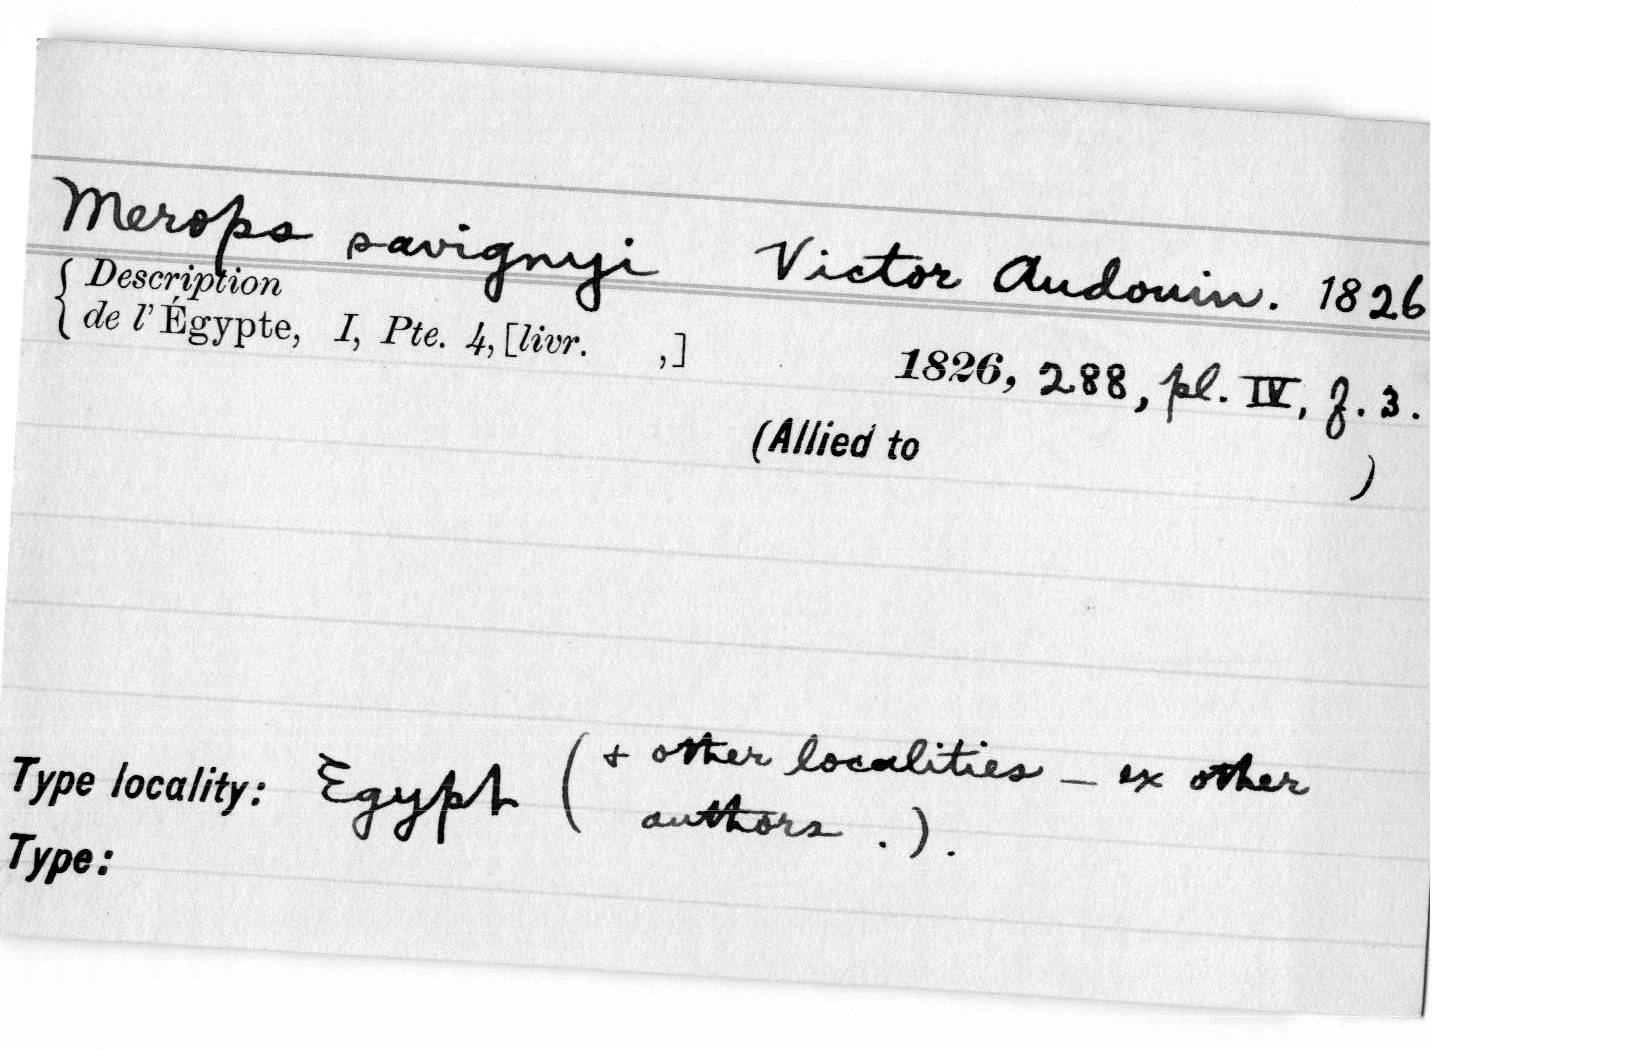 Merops savignyi Victor Audouin. 1826
{ Description
de l'Égypte, I, Pte. 4, [livr. ,] 1826, 288, pl. IV, f. 3.
(Allied to )
Type locality: Egypt (+ other localities – ex other
authors.).
Type: